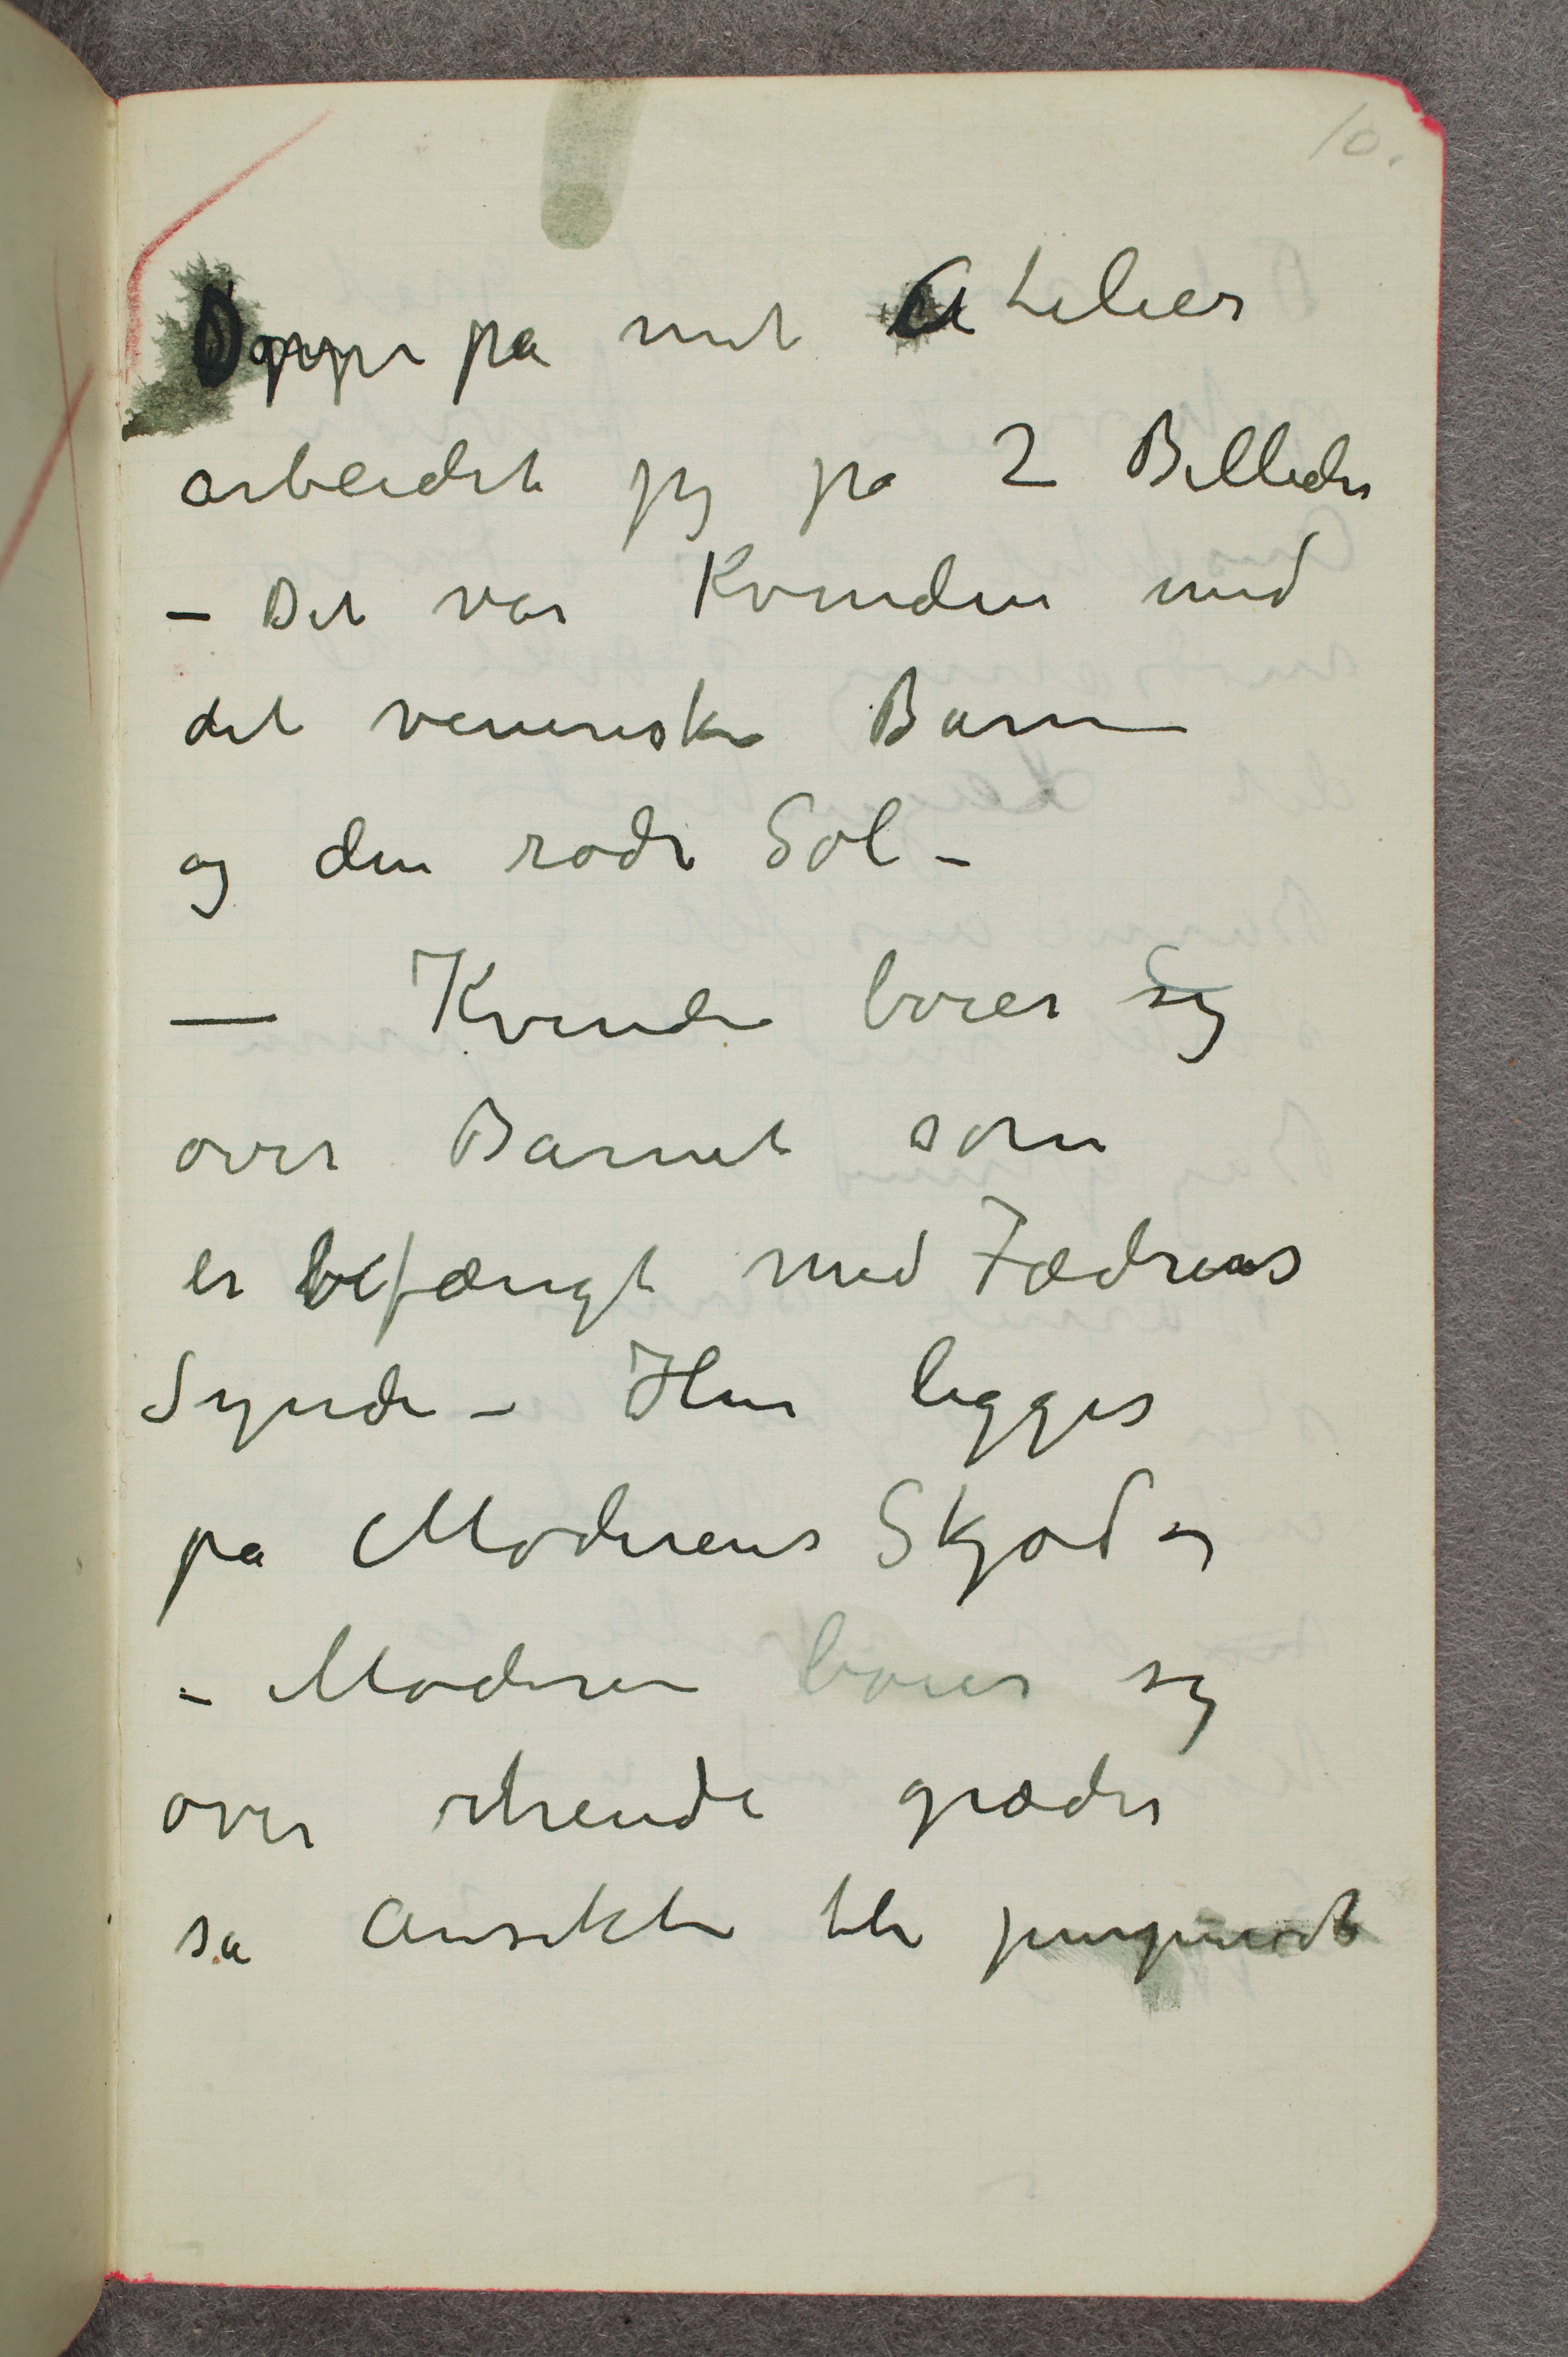 10.
Oppe på mit Atelier
arbeidet jeg på 2 Billeder
– Det var Kvinden med
det veneriske Barn
og den røde Sol –
— Kvinden boier sig
over Barnet som
er befængt med Fædrenes
Synder – Hun ligges
på Moderens Skjød og
– Moderen boier sig
over græder
så Ansiktet blir purpurrødt